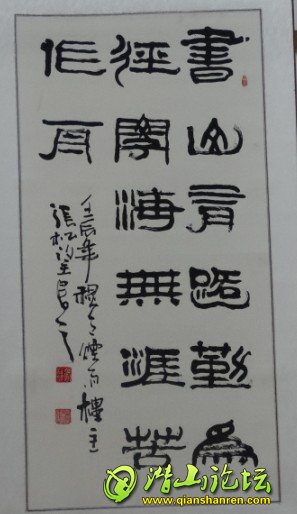 書山有路勤為
徑學海無涯苦
作舟
壬辰年煙雨樓主
張松
潜山论坛
www.qianshanren.com